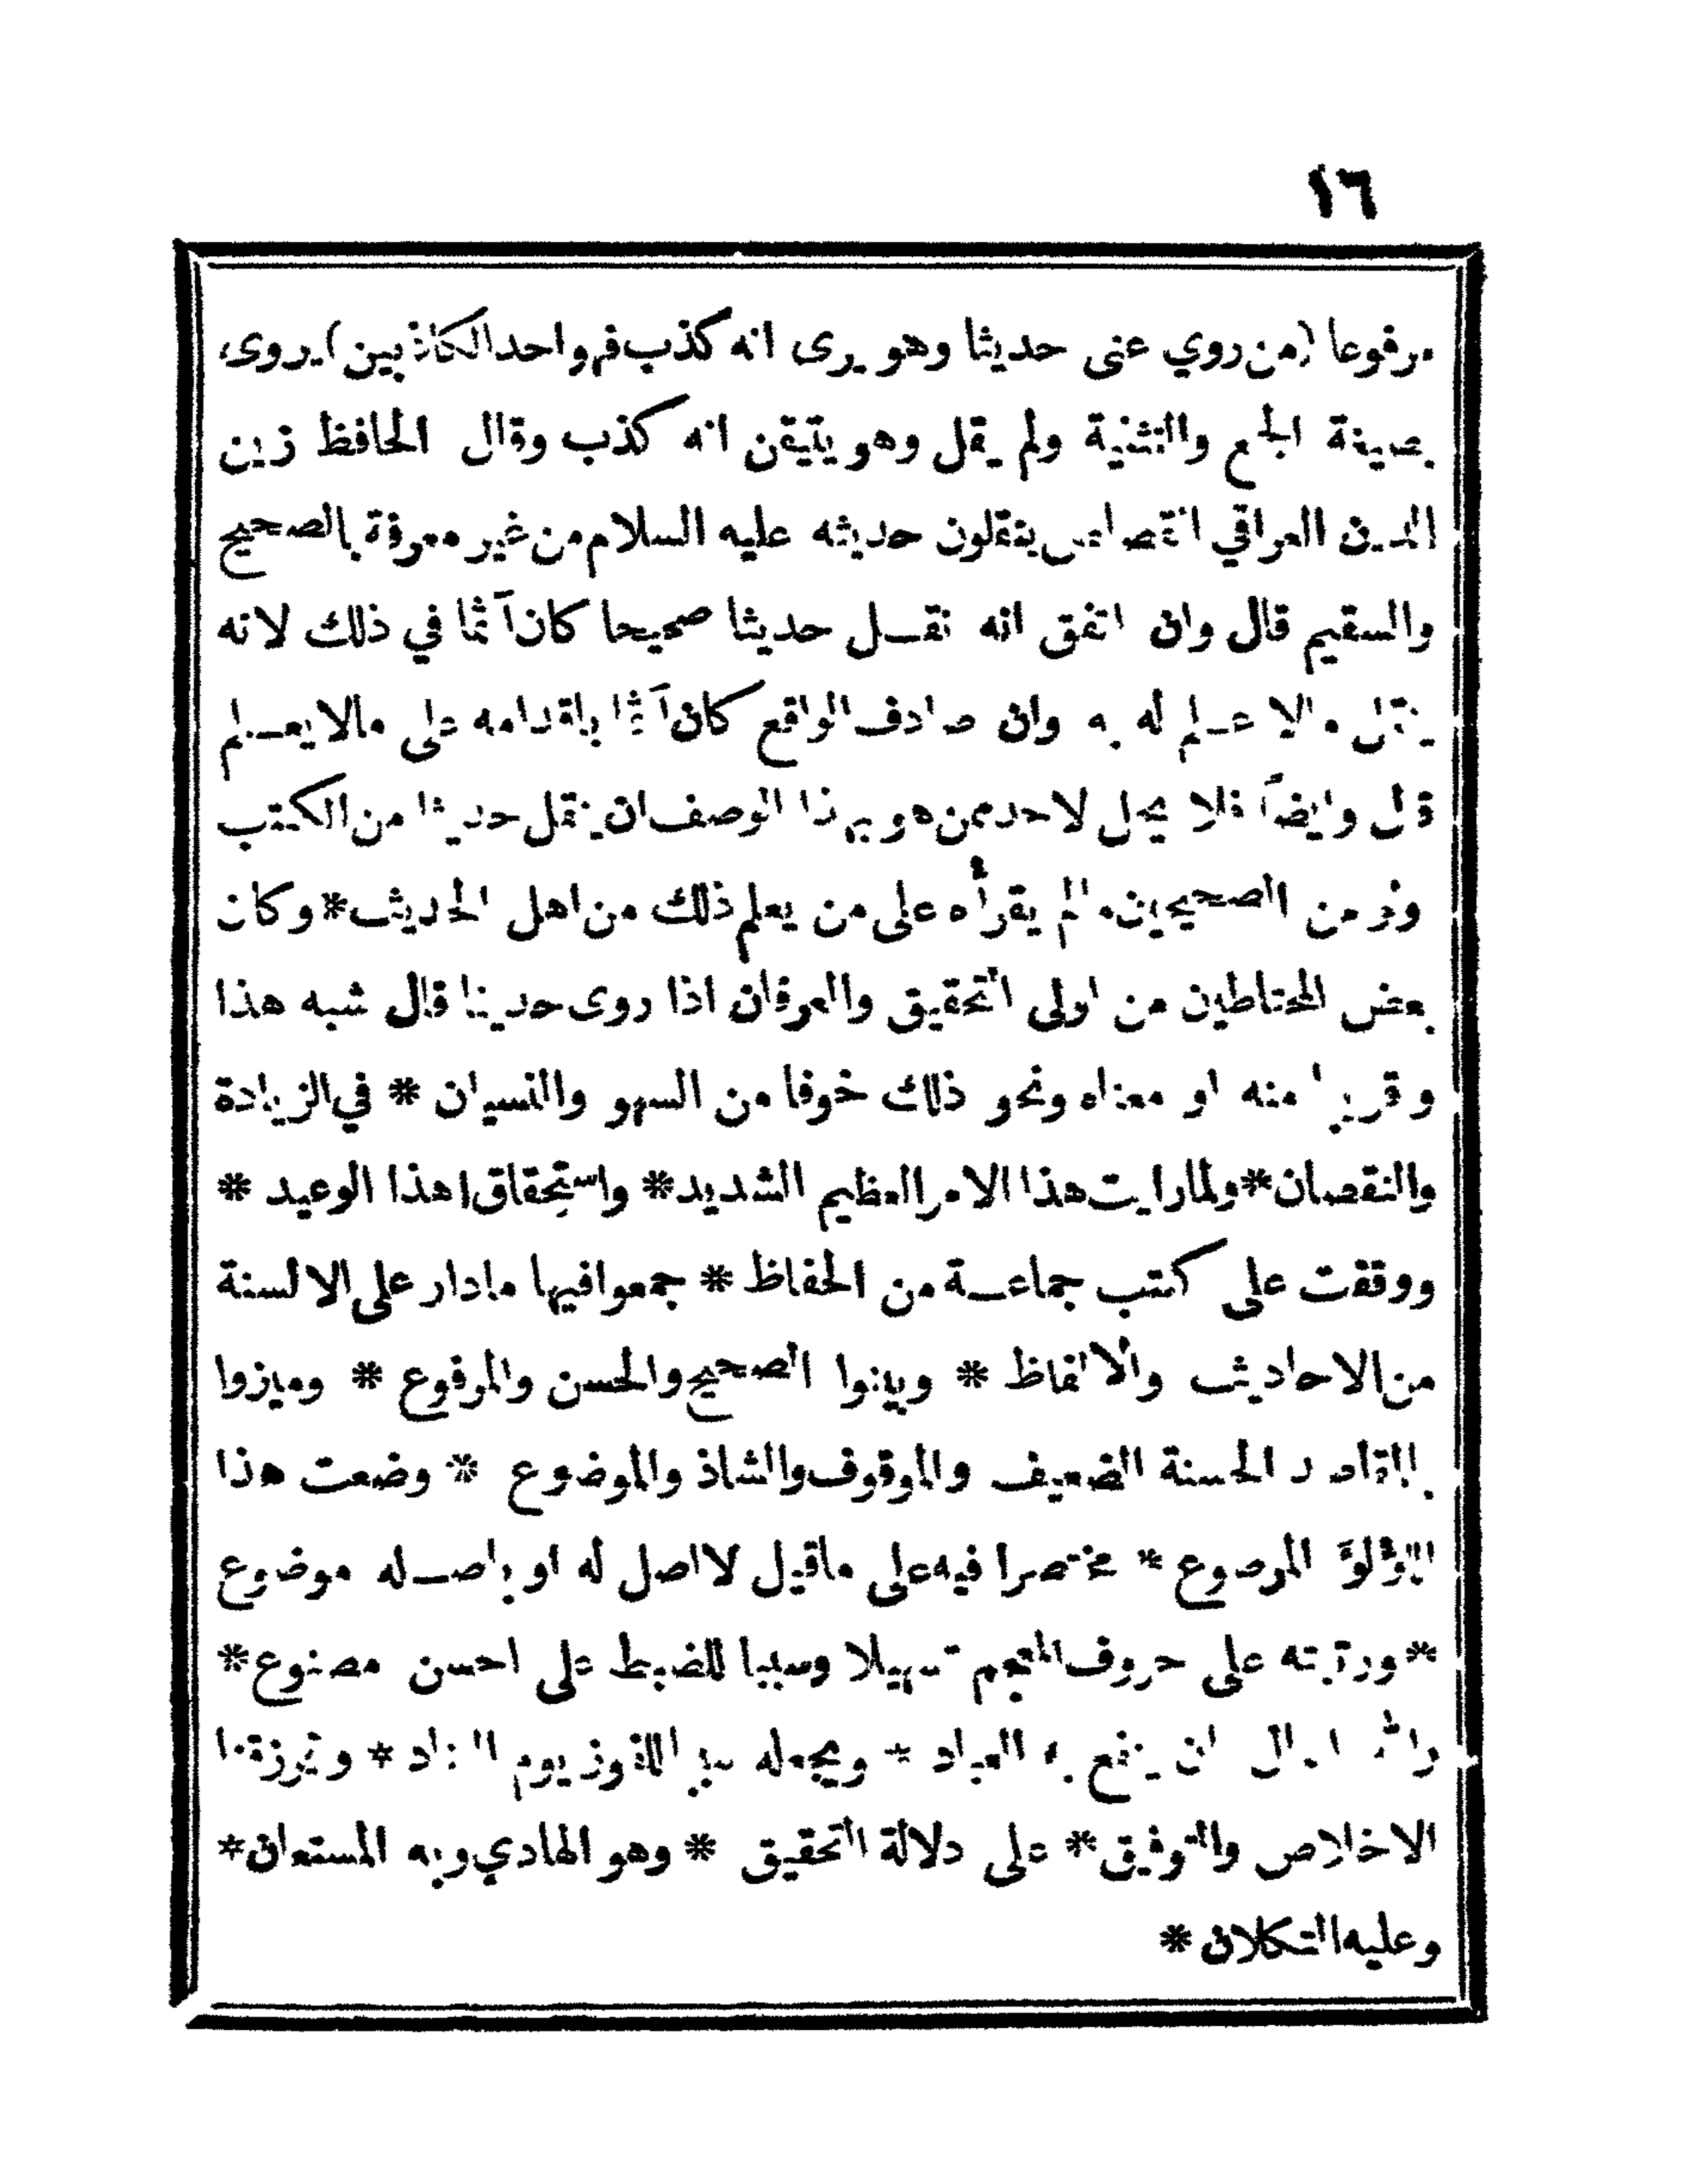 ١٦
مرفوعا (من روي عنى حديثا وهو يرى انه كذب فهو احد الكاذبين) يروى
بصيغة الجمع والتثنية ولم يقل وهو يتيقن انه كذب وقال الحافظ زين
الدين العراقي القصاص ينقلون حديثه عليه السلام من غير معرفة بالصحيح
والسقيم قال وان اتفق انه نقل حديثا صحيحا كان آثما في ذلك لانه
ينقل مالا علم له به وان صادف الواقع كان آثما باقدامه على مالا يعلم
قال وايضاً فلا يحل لاحد ممن هو بهذا الوصف ان ينقل حديثا من الكتب
ولو من الصحيحين مالم يقرأه على من يعلم ذلك من اهل الحديث * وكان
بعض المحتاطين من اولى التحقيق والعرفان اذا روى حديثا قال شبه هذا
وقريبا منه او معناه ونحو ذلك خوفا من السهو والنسيان * في الزيادة
والنقصان * ولما رايت هذا الامر العظيم الشديد * واستحقاق هذا الوعيد *
ووقفت على كتب جماعة من الحفاظ * جمعوا فيها مادار على الالسنة
من الاحاديث والالفاظ * وبينوا الصحيح والحسن والمرفوع * وميزوا
بالمقاصد الحسنة الضعيف والموقوف والشاذ والموضوع * وضعت هذا
اللؤلؤ المرصوع * مختصرا فيه على ماقيل لا اصل له او باصله موضوع
* ورتبته على حروف المعجم تسهيلا وسببا للضبط على احسن مصنوع *
والله اسال ان ينفع به العباد * ويجعله سببا للفوز يوم التناد * ويرزقنا
الاخلاص والتوفيق * على دلالة التحقيق * وهو الهادي وبه المستعان *
وعليه التكلان *